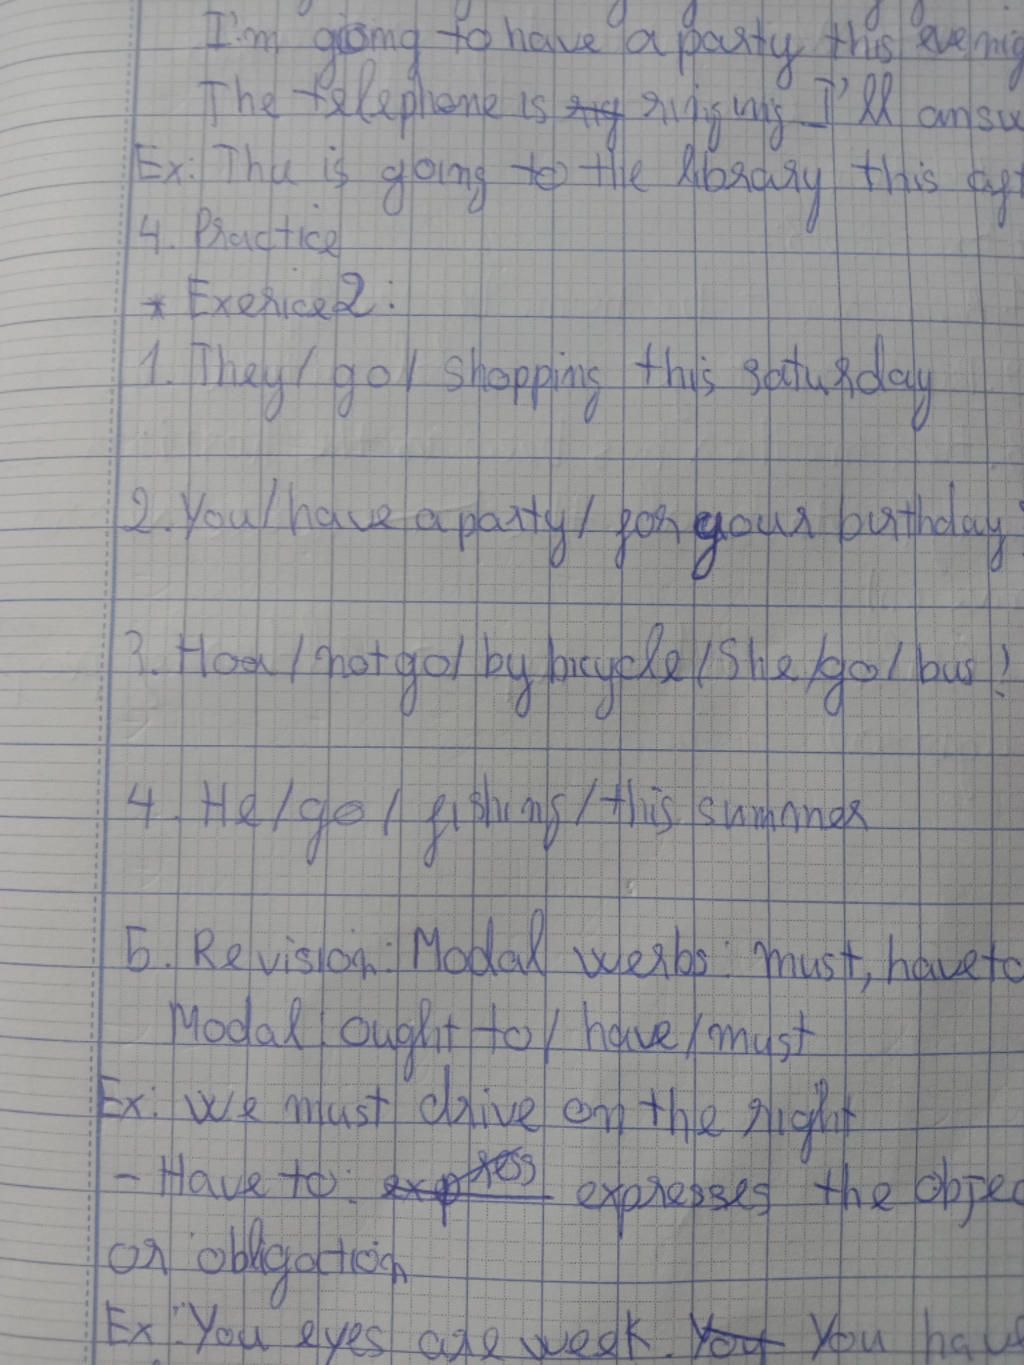 I'm going to have a party this evenig
The telephone is ringing I'll answ
Ex: Thu is going to the library this aft
4. Practice
* Exerice 2:
1. They/ go/ shopping this saturday
2. You/have a party/ for your birthday?
3. Hoa/not go/ by bicycle/She/go/bus!
4. He/go/ fishing/this summer
5. Revision: Modal werbs: must, have to
Modal: ought to/ have/must
Ex: we must drive on the right
- Have to: express expresses the objec
or obligation
Ex: You eyes are week. You You have